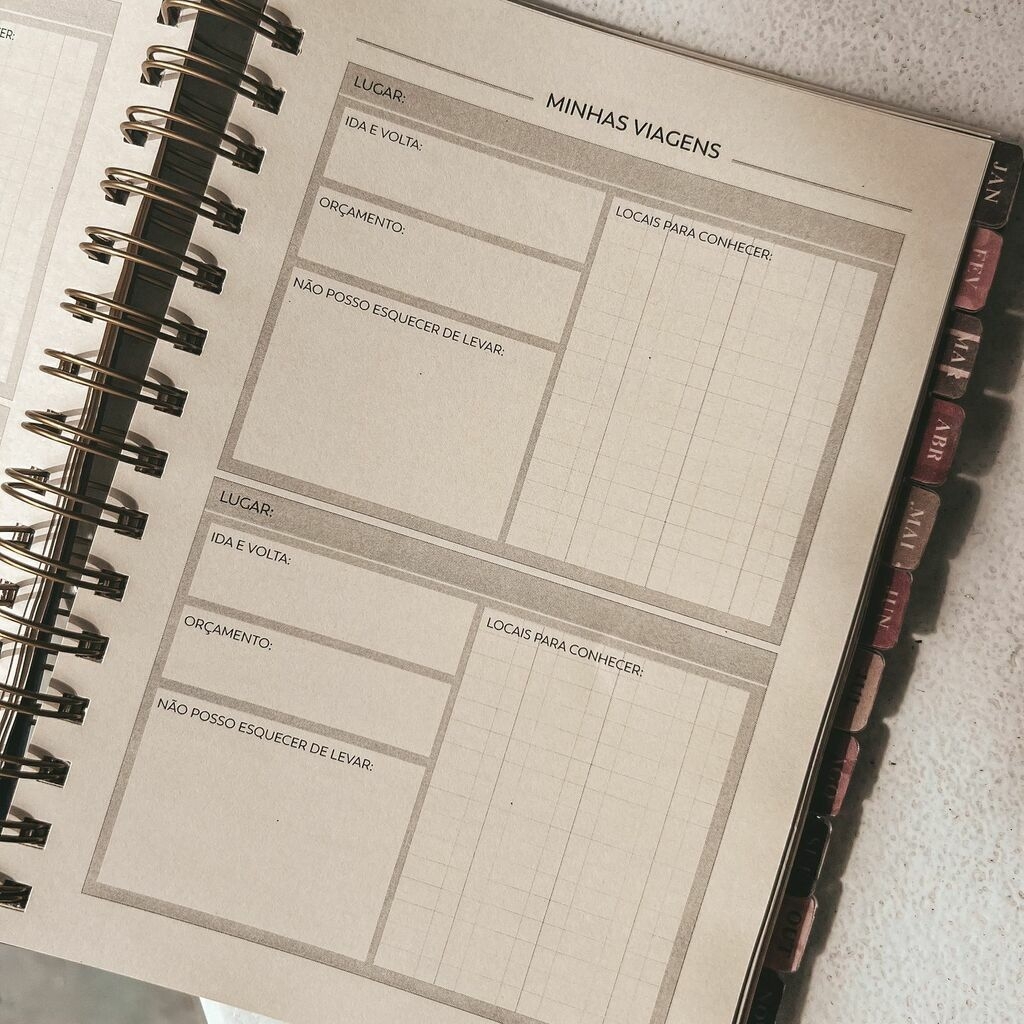 ER:
MINHAS VIAGENS
LUGAR:
IDA E VOLTA:
ORÇAMENTO:
NÃO POSSO ESQUECER DE LEVAR:
LOCAIS PARA CONHECER:
LUGAR:
IDA E VOLTA:
ORÇAMENTO:
NÃO POSSO ESQUECER DE LEVAR:
LOCAIS PARA CONHECER:
JAN
FEV
MAR
ABR
MAI
JUN
JUL
AGO
SET
OUT
NO